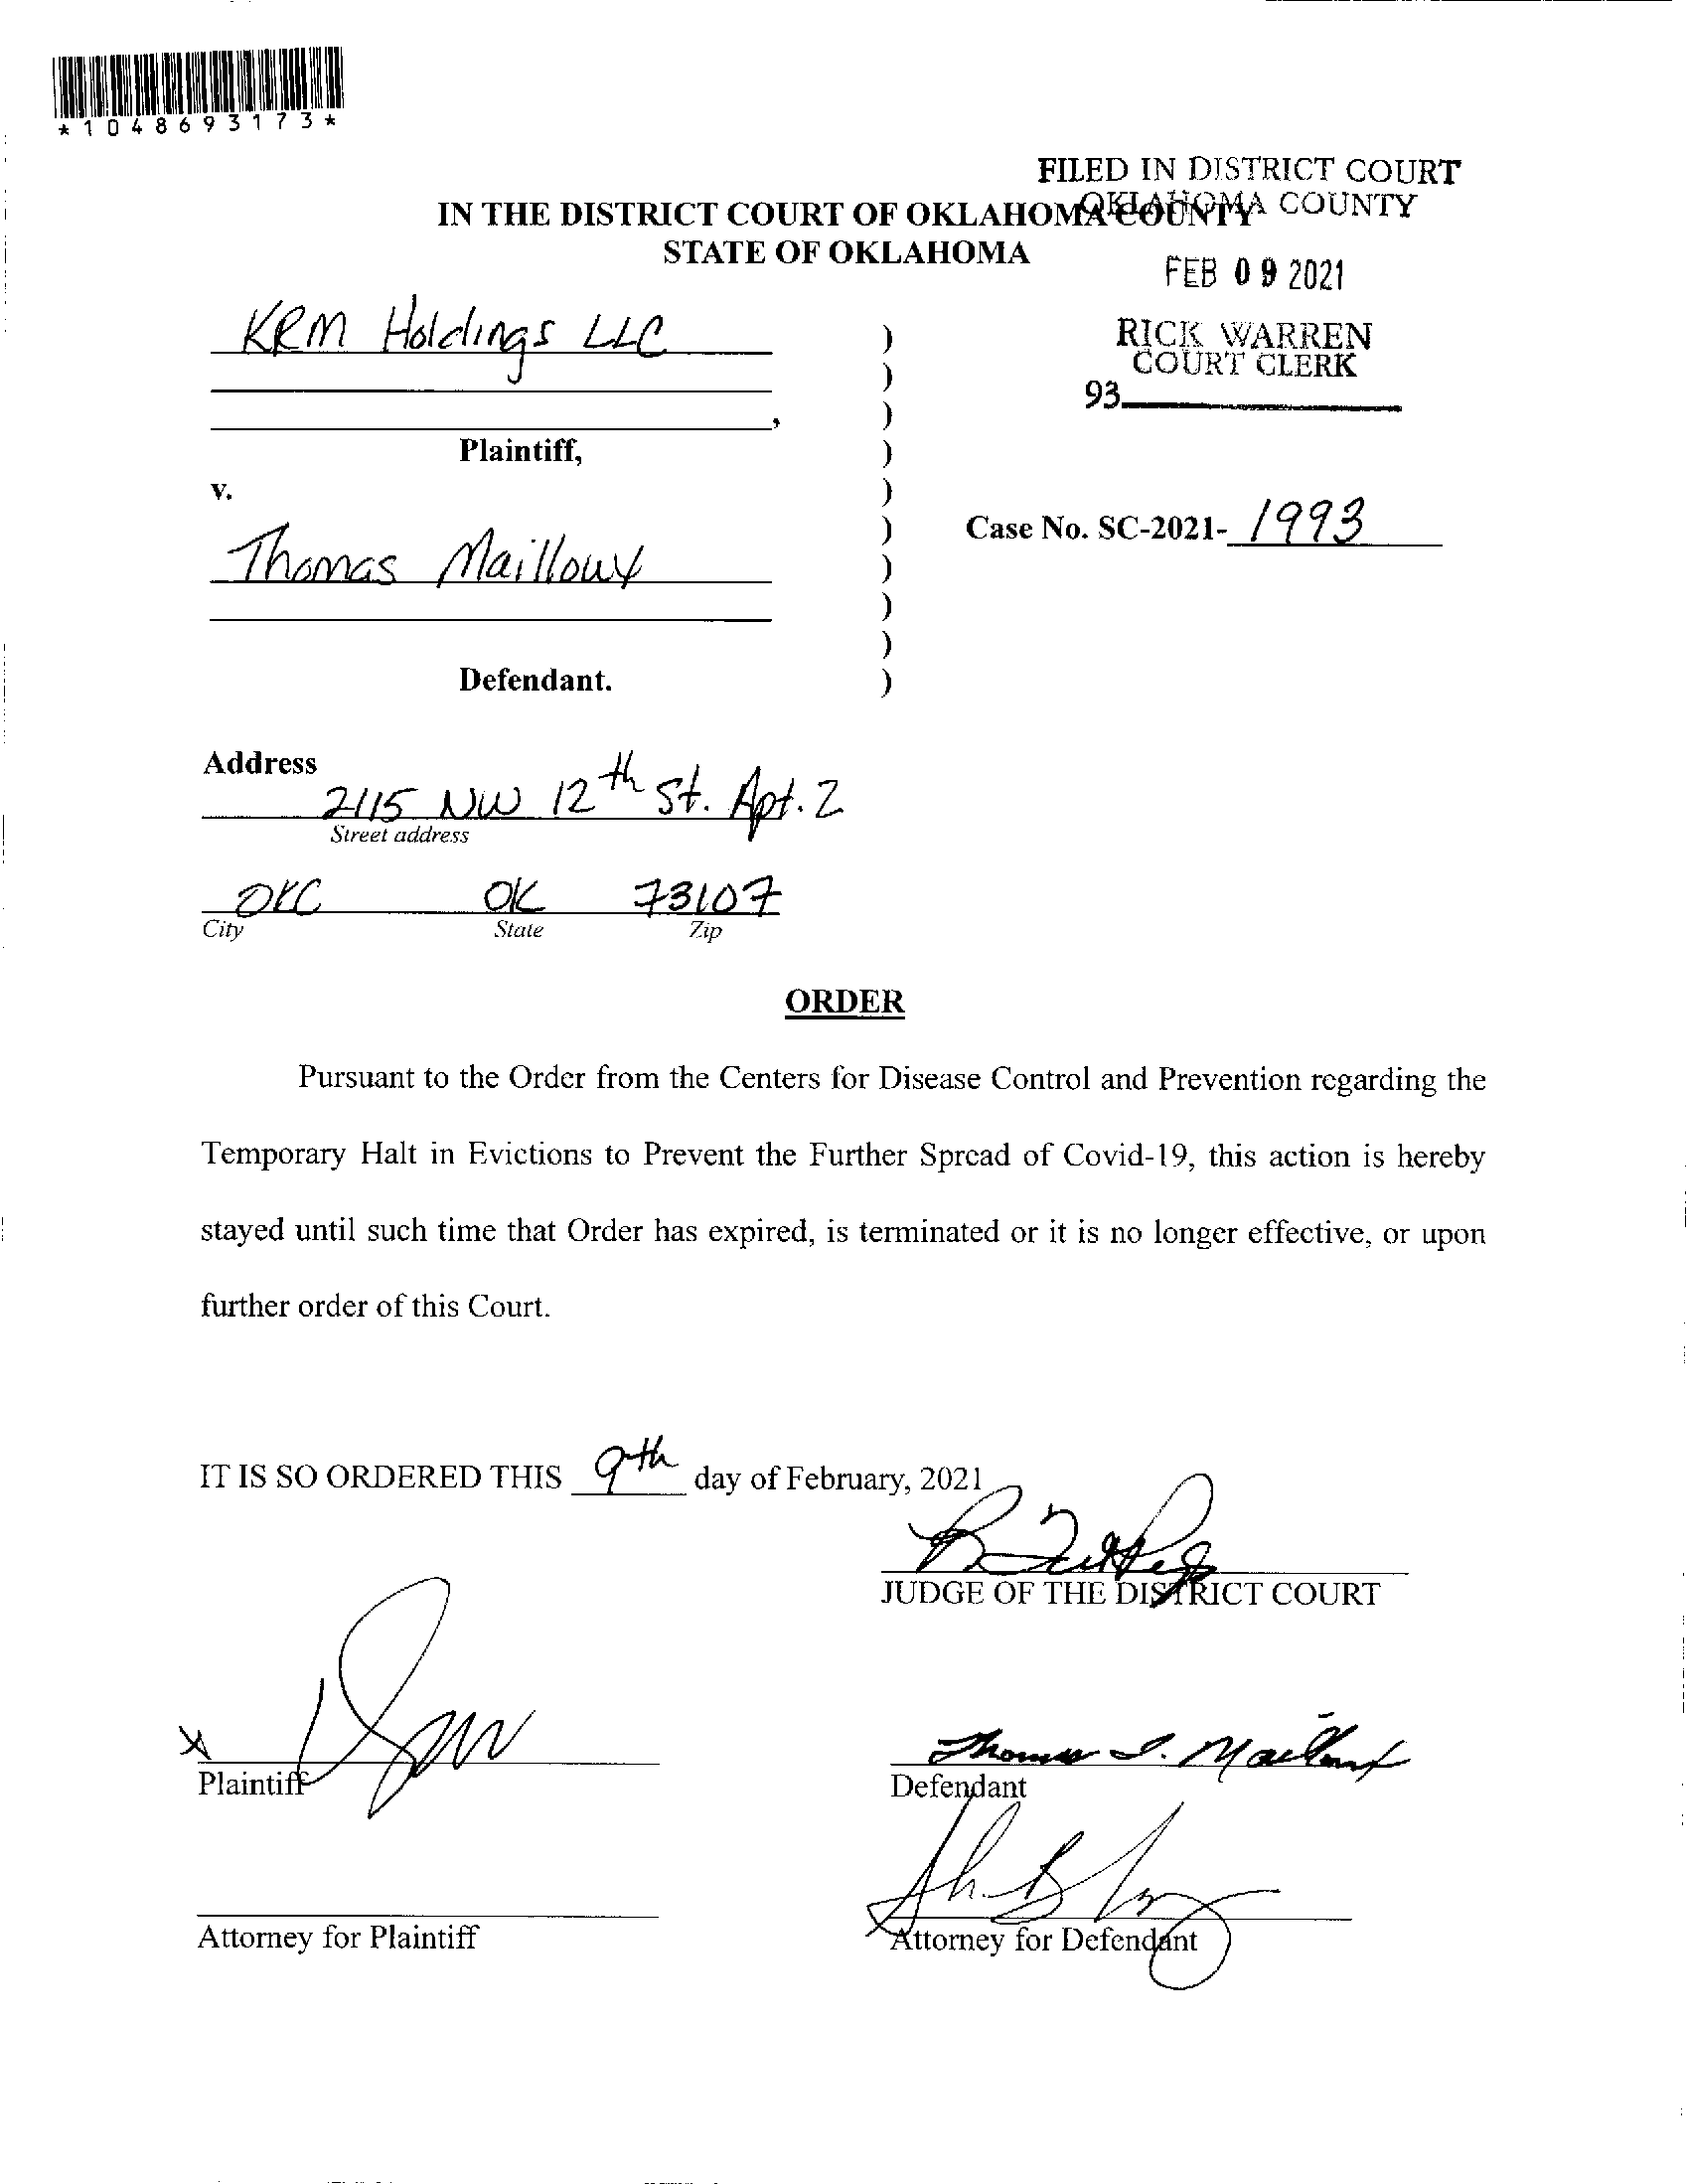 *1048693173*
FILED IN DISTRICT COURT
OKLAHOMA COUNTY
IN THE DISTRICT COURT OF OKLAHOMA COUNTY
STATE OF OKLAHOMA
FEB 09 2021
RICK WARREN
COURT CLERK
93
KRM Holdings LLC )
)
, )
Plaintiff, )
v. )
Case No. SC-2021- 1993
Thomas Mailloux )
)
)
)
Defendant. )
Address
2115 NW 12th St. Apt. 2
Street address
OKC OK 73107
City State Zip
ORDER
Pursuant to the Order from the Centers for Disease Control and Prevention regarding the
Temporary Halt in Evictions to Prevent the Further Spread of Covid-19, this action is hereby
stayed until such time that Order has expired, is terminated or it is no longer effective, or upon
further order of this Court.
IT IS SO ORDERED THIS 9th day of February, 2021
JUDGE OF THE DISTRICT COURT
X
Plaintiff
Thomas I. Mailloux
Defendant
Attorney for Plaintiff
Attorney for Defendant